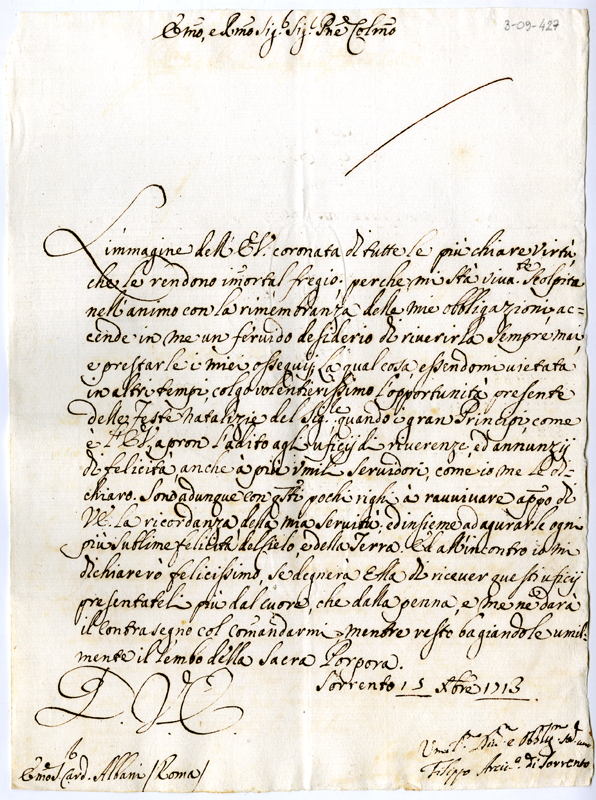 3-09-427
Emo, e Rmo Sigr. Sigr. Pne Colmo
L'immagine dell'E.V. coronata di tutte le più chiare virtù
che le rendono immortal fregio, perche mi stà viva.te scolpita
nell'animo con la rimembranza delle mie obbligazioni, ac=
cende in me un fervido desiderio di riverirla sempre mai
e prestarle i miei ossequij. La qual cosa, essendomi vietata
in altri tempi, colgo volentierissimo l'opportunità presente
delle Feste Natalizie del Sigre. quando i gran Principi, come
è l'E.V., apron l'adito agli uficij di riverenze, ed annunzij
di felicità, anche à più umili servidori, come io me le di=
chiaro. Son adunque con qsti pochi righi à ravvivare appo di
V.E. la ricordanza della mia servitù, ed insieme ad agurarle ogni
più sublime felicità del Cielo, e della Terra. Ed all'incontro io mi
dichiarerò felicissimo, se degnerà Ella di ricever questi uficij
presentatel più dal cuore, che dalla penna, e me ne darà
il contrasegno col comandarmi, mentre resto bagiandole umil=
mente il lembo della Sacra Porpora.
Sorrento 15 Xbre 1713.
D. V. E.
Umilmo Divmo e Obblmo Servre
Emo Sr Card. Albani (Roma)
Filippo Arciv.o di Sorrento